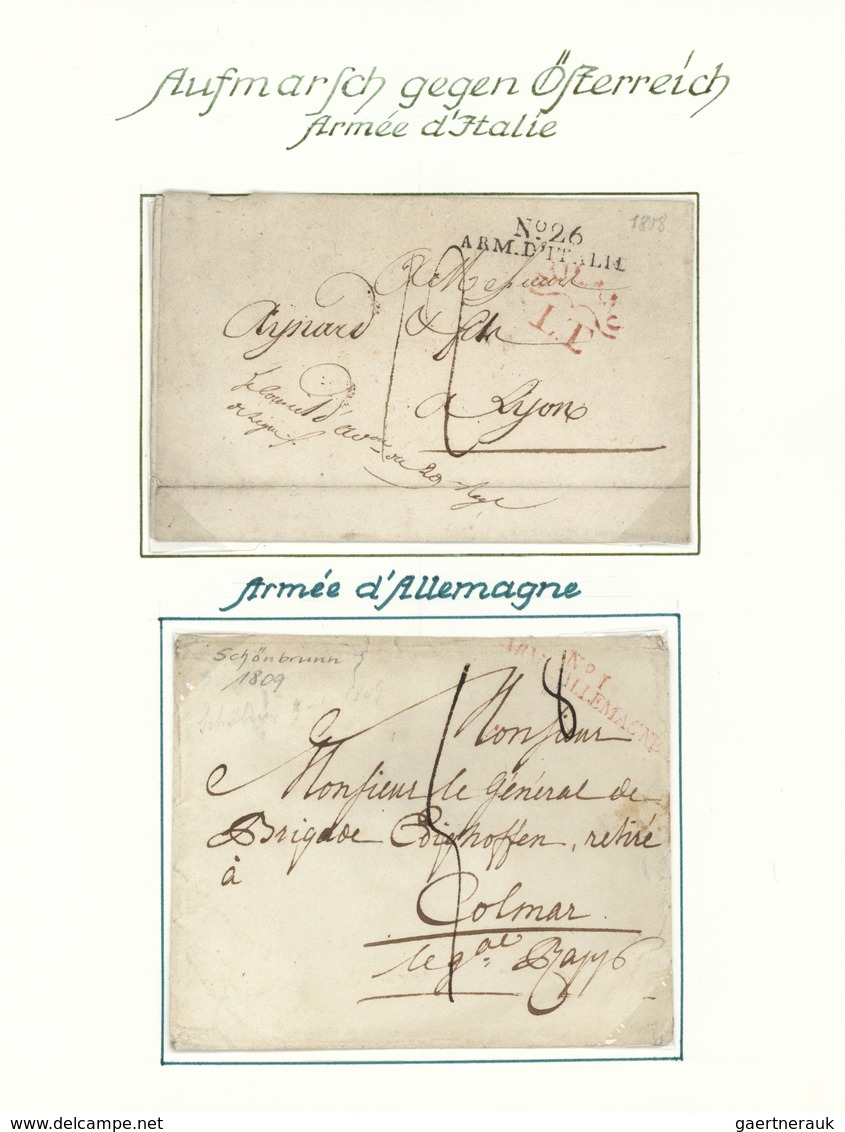 Aufmarsch gegen Österreich
Armée d'Italie
1808
No. 26
ARM. D'ITALIE
L.I
Aynard & fils
a Lyon
Armée d'Allemagne
Schönbrunn
1809
No 1
ARM. D'ALLEMAGNE
8
Monsieur
Monsieur le général de
Brigade Coighoffen, retiré
à
Colmar
le gal Rapp
delcampe.net
gaertnerauk